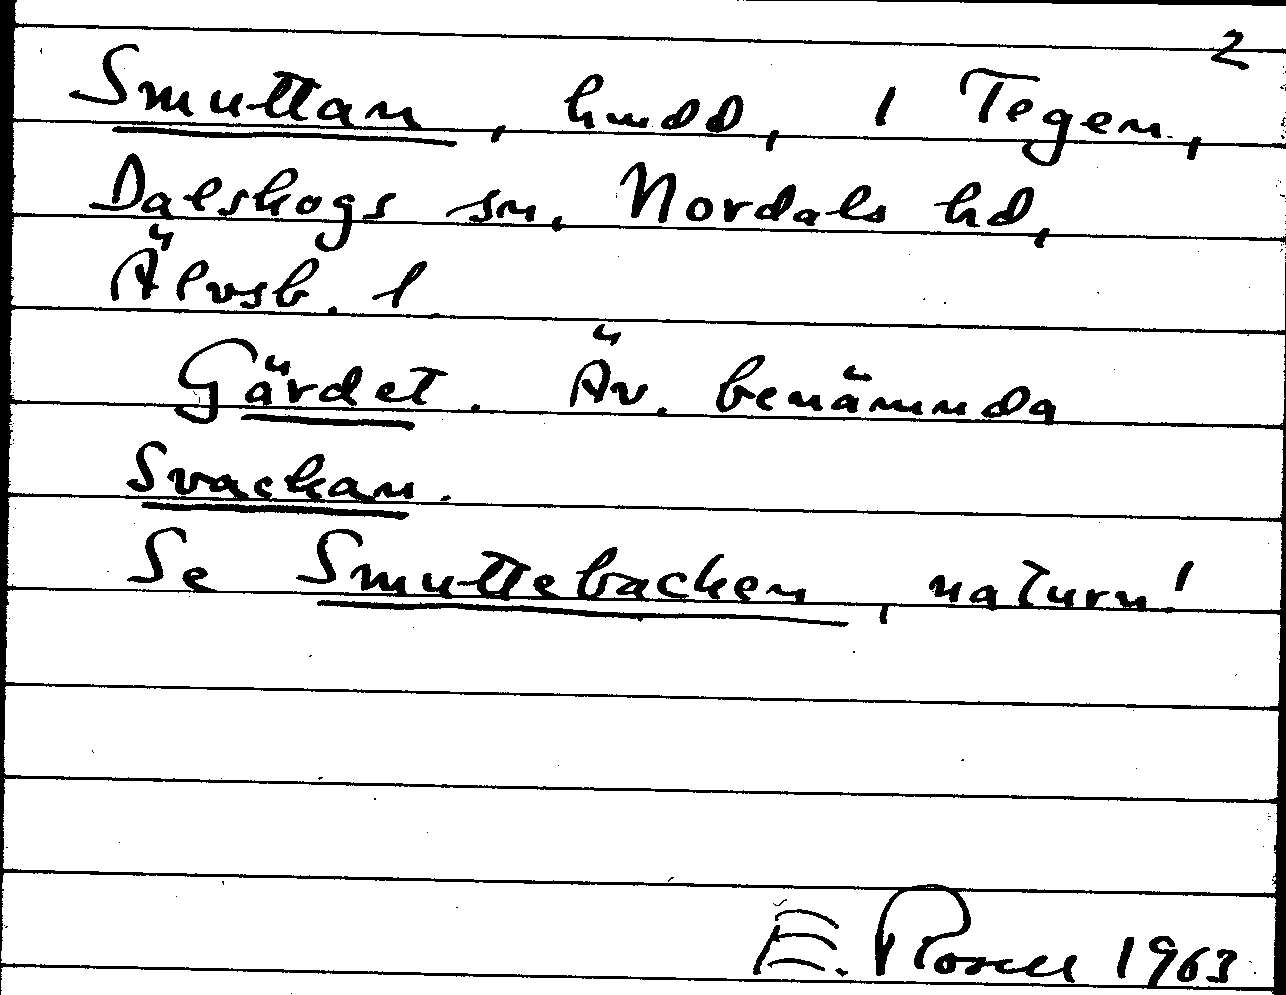 2
Smuttan, hmdd, 1 Tegen,
Dalskogs sn, Nordals hd,
Älvsb. l.
Gärdet. Äv. benämnda
Svackan.
Se Smuttebacken, naturn!
E. Rosell 1963